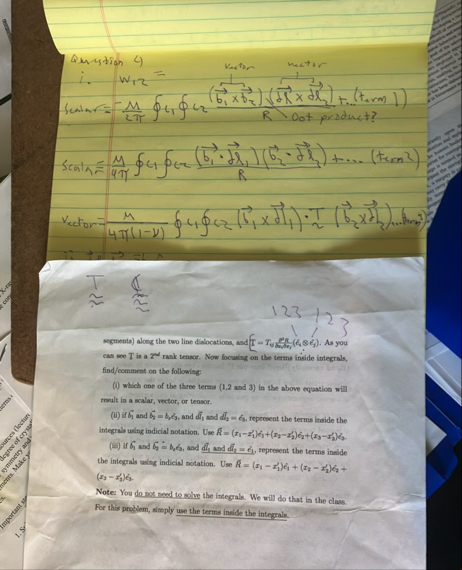 Question 4)
i. W₁₂ =
vector vector
scalar = -μ/2π ∮c₁ ∮c₂ (b⃗₁ × b⃗₂) · (dl⃗₁ × dl⃗₂)/R + ... (term 1)
Dot product?
Scalar = μ/4π ∮c₁ ∮c₂ (b⃗₁ · dl⃗₁)(b⃗₂ · dl⃗₂)/R + ... (term 2)
Vector = μ/4π(1-ν) ∮c₁ ∮c₂ (b⃗₁ × dl⃗₁) · T (b⃗₂ × dl⃗₂)
T
1 2 3 1 2 3
segments) along the two line dislocations, and
As you
can see T is a 2ⁿᵈ rank tensor. Now focusing on the terms inside integrals,
find/comment on the following:
(i) which one of the three terms (1,2 and 3) in the above equation will
result in a scalar, vector, or tensor.
(ii) if b⃗₁ and b⃗₂ = bₑê₃, and dl⃗₁ and dl⃗₂ = ê₃, represent the terms inside the
integrals using indicial notation. Use R⃗ = (x₁−x′₁)ê₁+(x₂−x′₂)ê₂+(x₃−x′₃)ê₃.
(iii) if b⃗₁ and b⃗₂ = bₑê₃, and dl⃗₁ and dl⃗₂ = ê₁, represent the terms inside
the integrals using indicial notation. Use R⃗ = (x₁ − x′₁)ê₁ + (x₂ − x′₂)ê₂ +
(x₃ − x′₃)ê₃.
Note: You do not need to solve the integrals. We will do that in the class.
For this problem, simply use the terms inside the integrals.